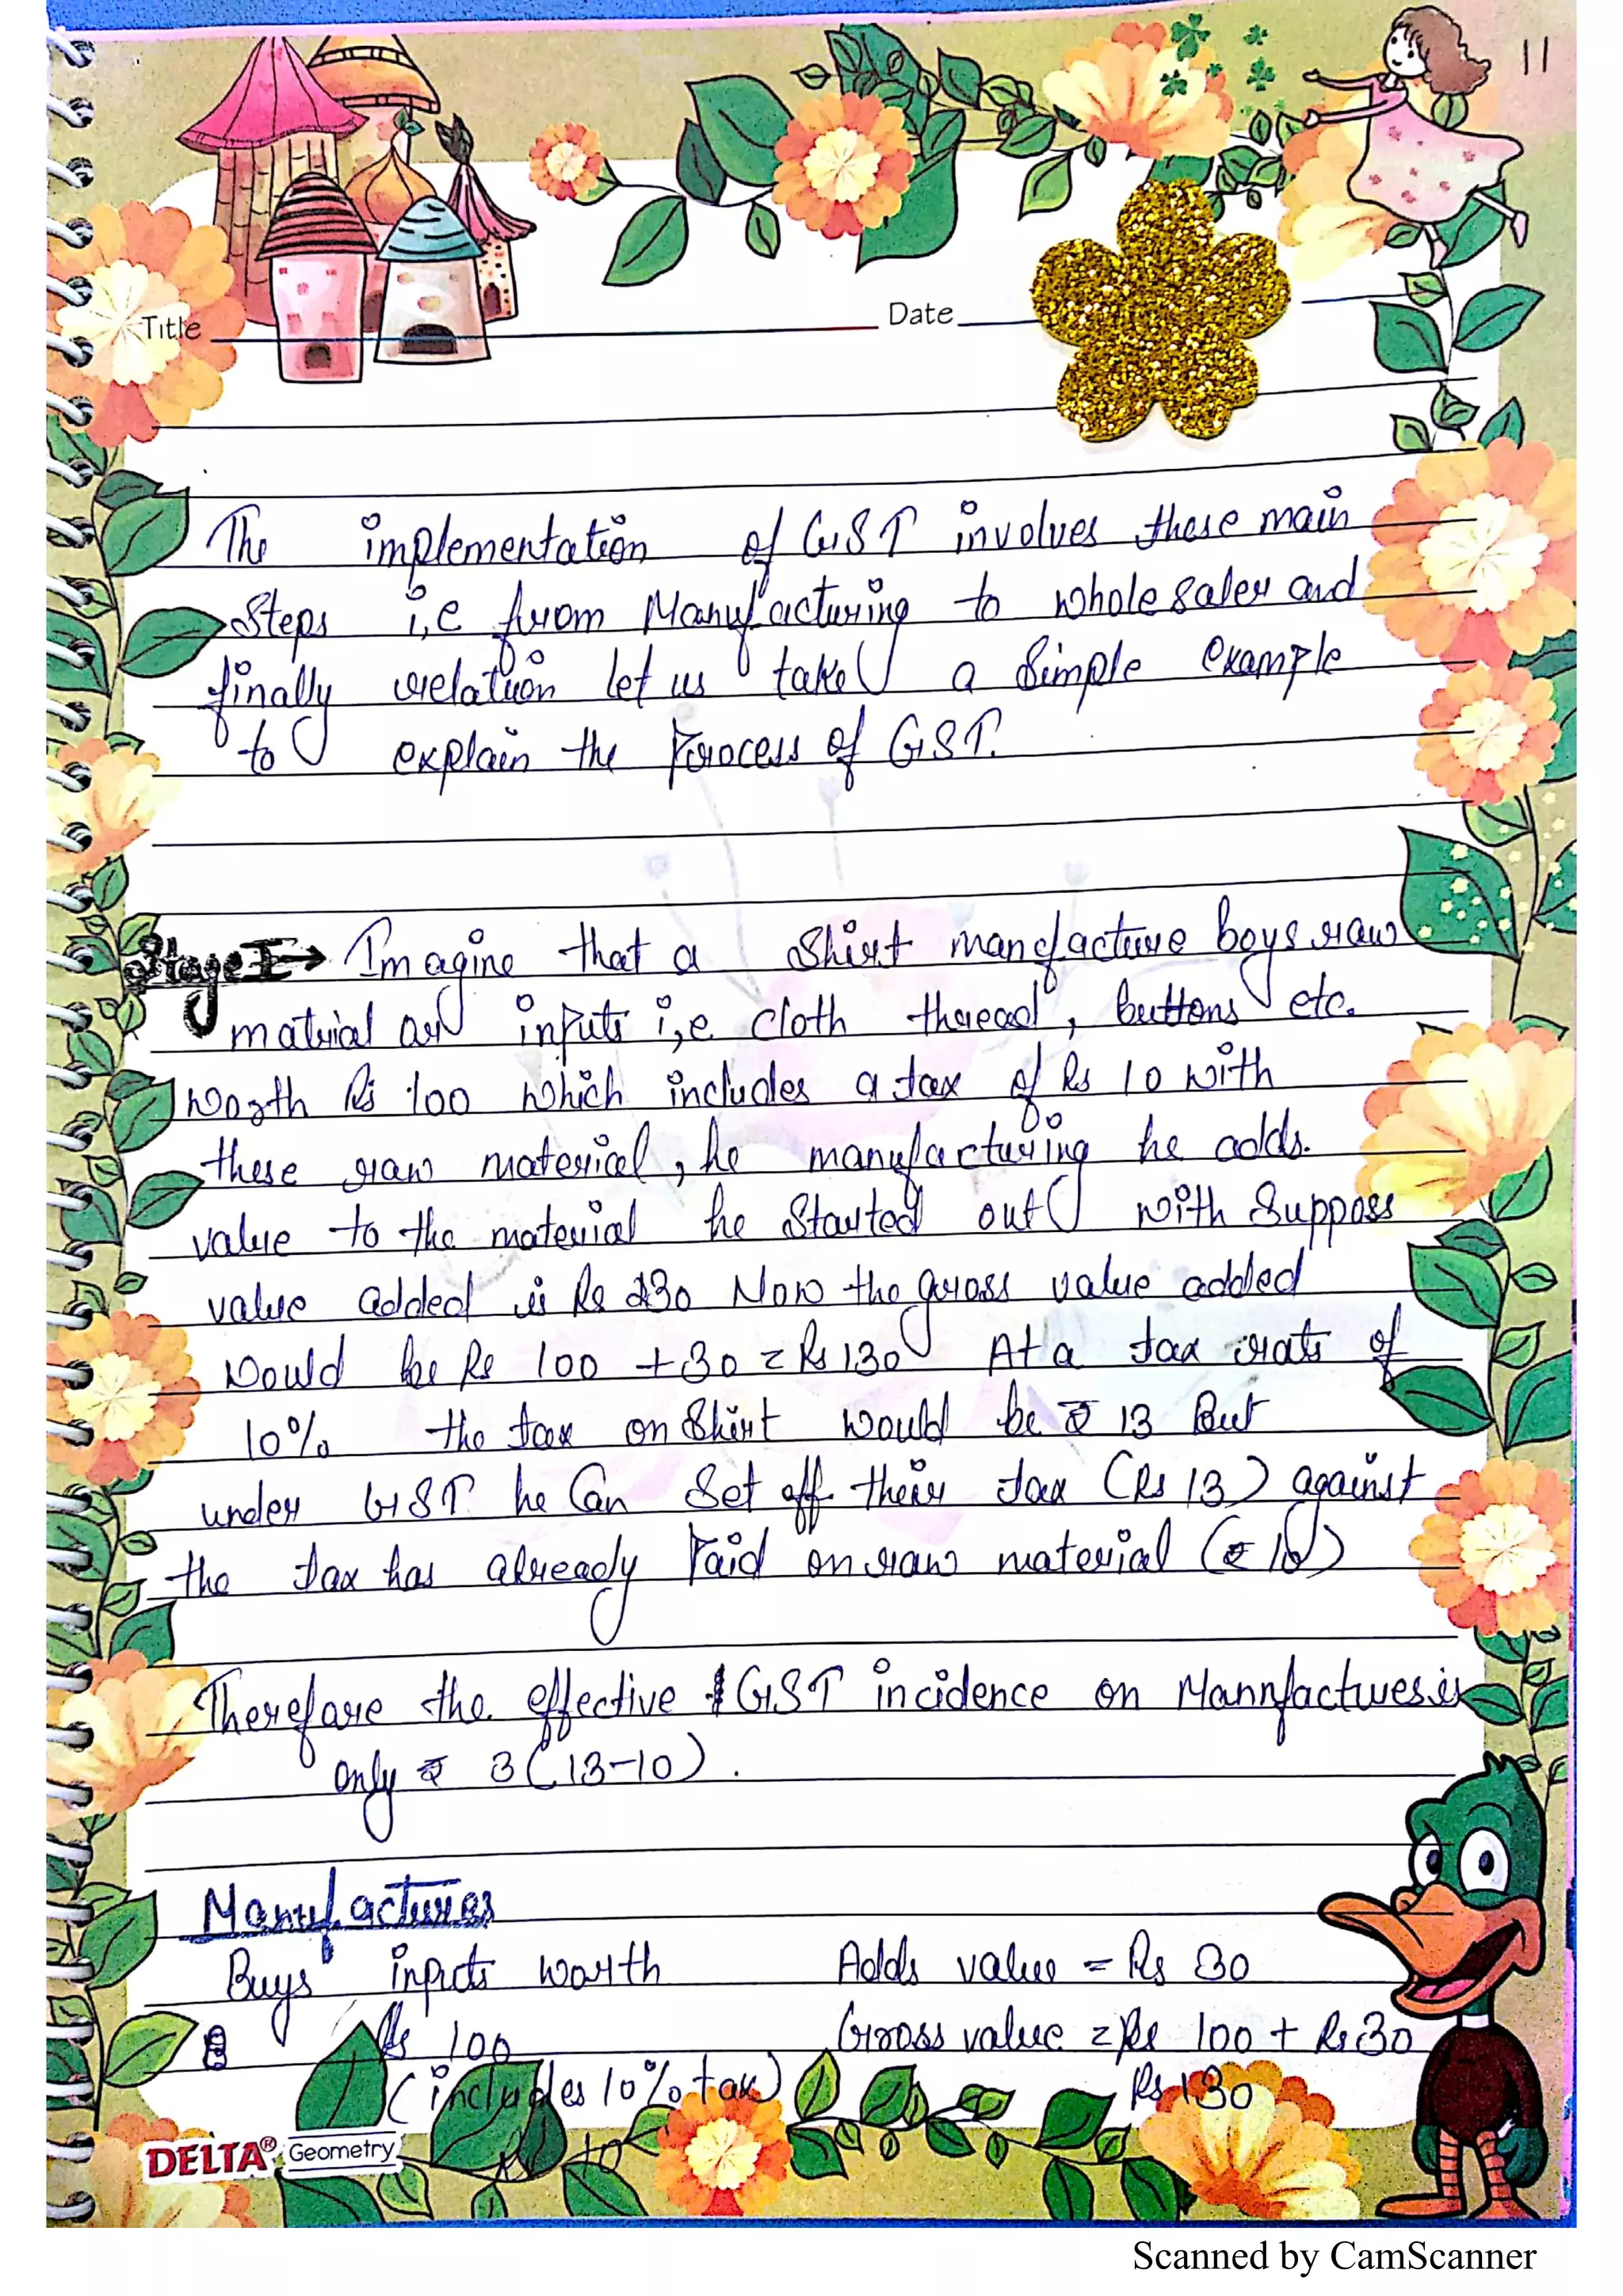 11
Title
Date
The implementation of GST involves these main
Steps i,e from Manufacturing to whole saler and
finally relation let us take a Simple Example
to explain the Process of GST.
Stage I → Imagine that a Shirt manfacture boys raw
material as inputs i,e cloth thread, buttons etc.
worth Rs 100 which includes a tax of Rs 10 with
these raw material, he manufacturing he adds.
value to the material he Started out with Supposs
value added is Rs 30 Now the gross value added
Would be Rs 100 + 30 = Rs 130 At a tax rate of
10% the tax on Shirt would be ₹ 13 But
under GST he Can Set off their tax (Rs 13) against
the tax has already Paid on raw material (₹ 10)
Therefore the effective GST incidence on Mannfactures is
only ₹ 3 (13-10).
Manufactures
Buys inputs worth Adds value = Rs 30
Rs 100 Gross value = Rs 100 + Rs 30
(includes 10% tax) Rs 130
DELTA® Geometry
Scanned by CamScanner